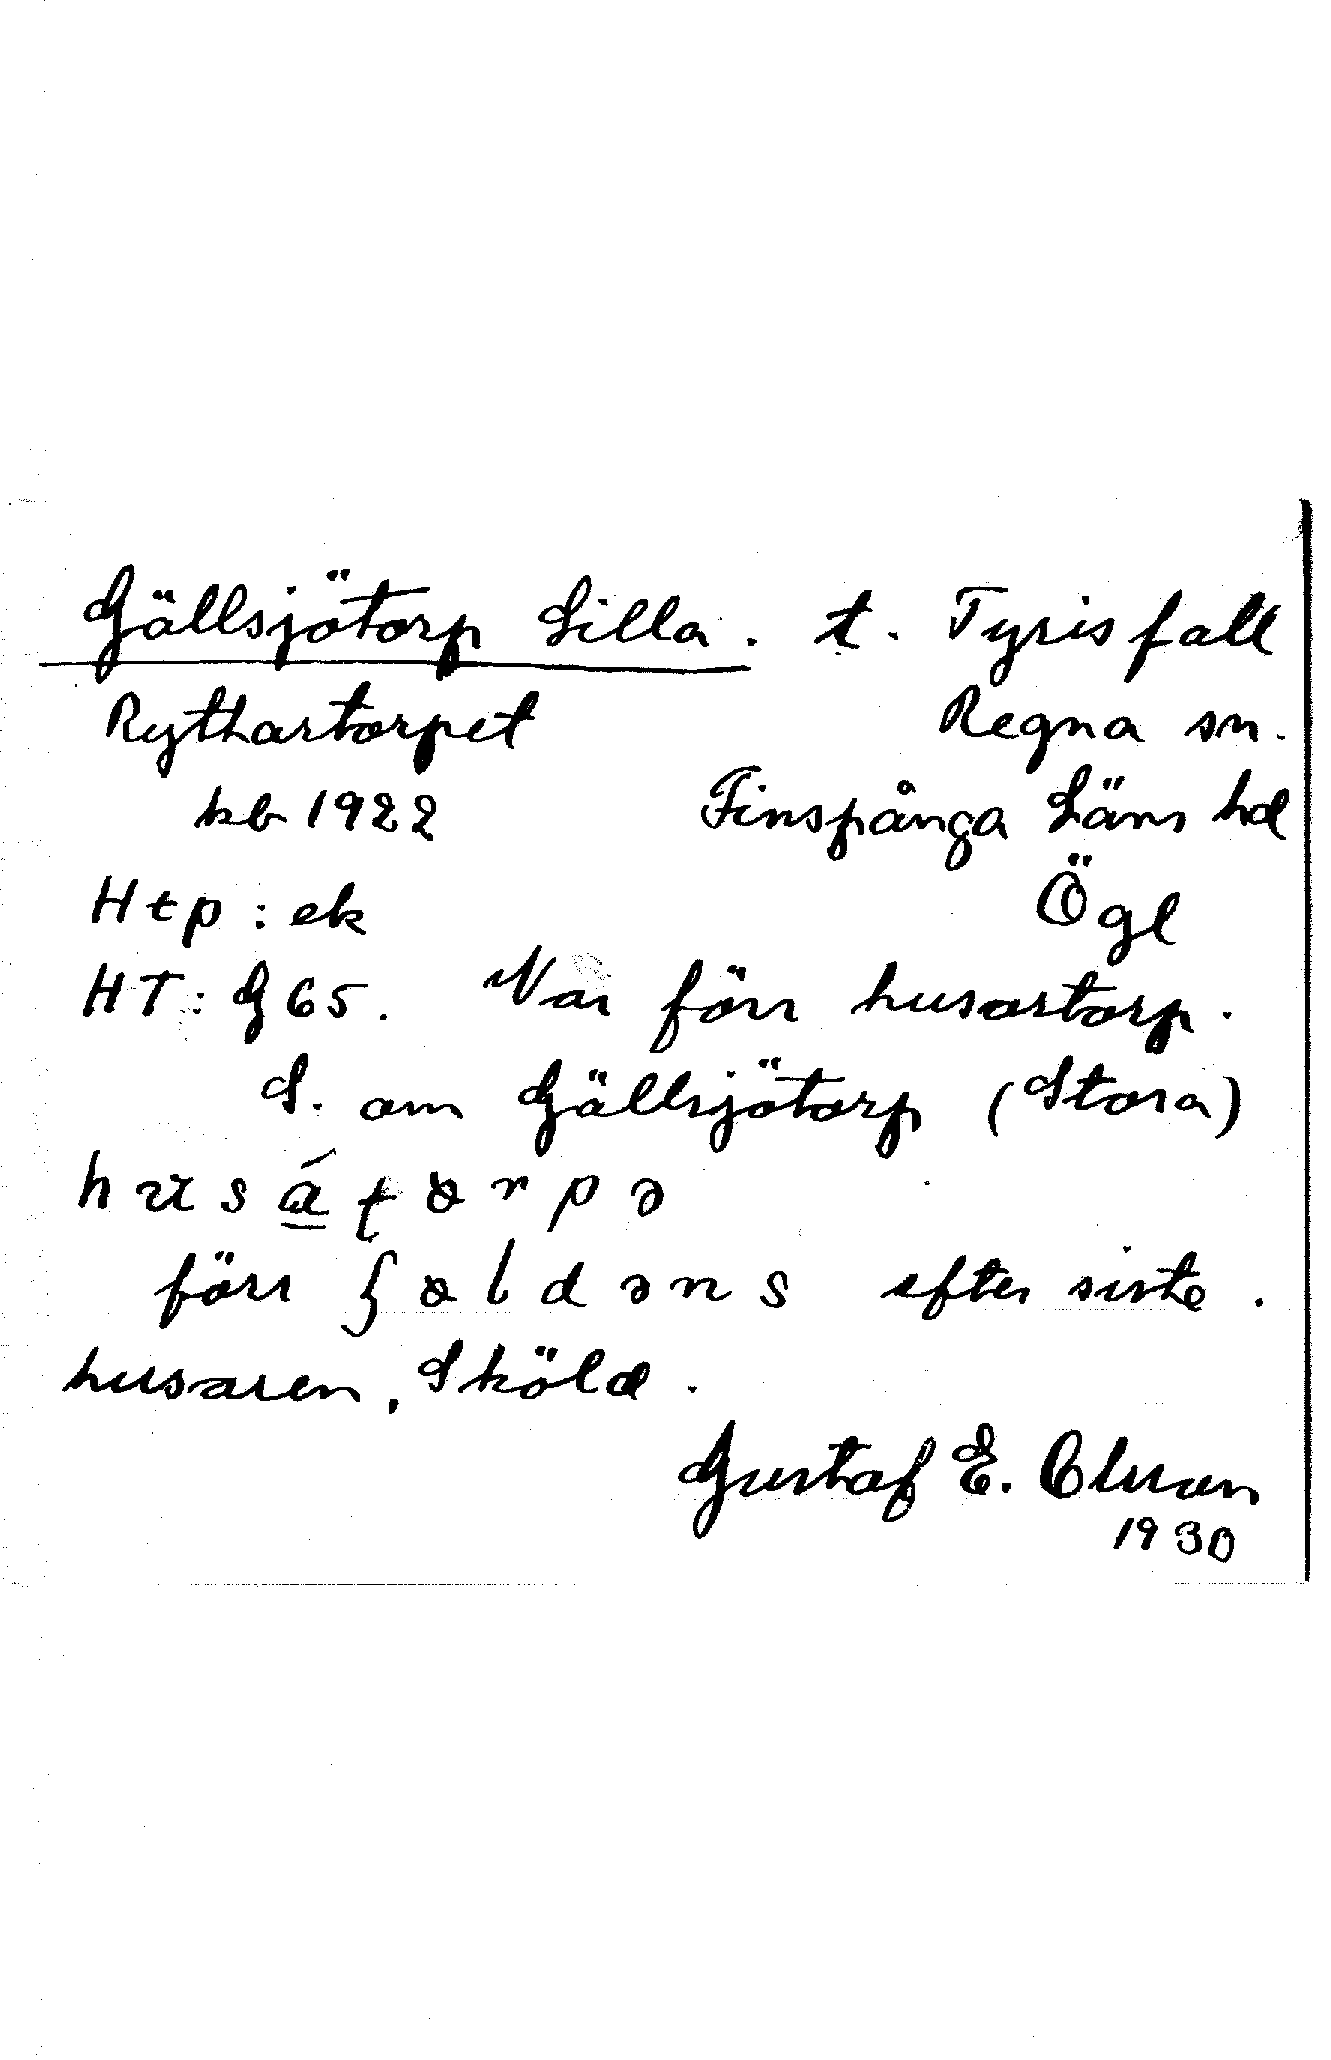 Gällsjötorp Lilla. t. Tyrisfall
Rythartorpet Regna sn.
kb 1922 Finspånga Läns hd
Htp: ek Ögl
HT: G65. Var förr husartorp.
S. om Gällsjötorp (Stora)
husáʈɵrpə
förr ʃɵldəns efter siste
husaren, Sköld.
Gustaf E. Olsson
1930